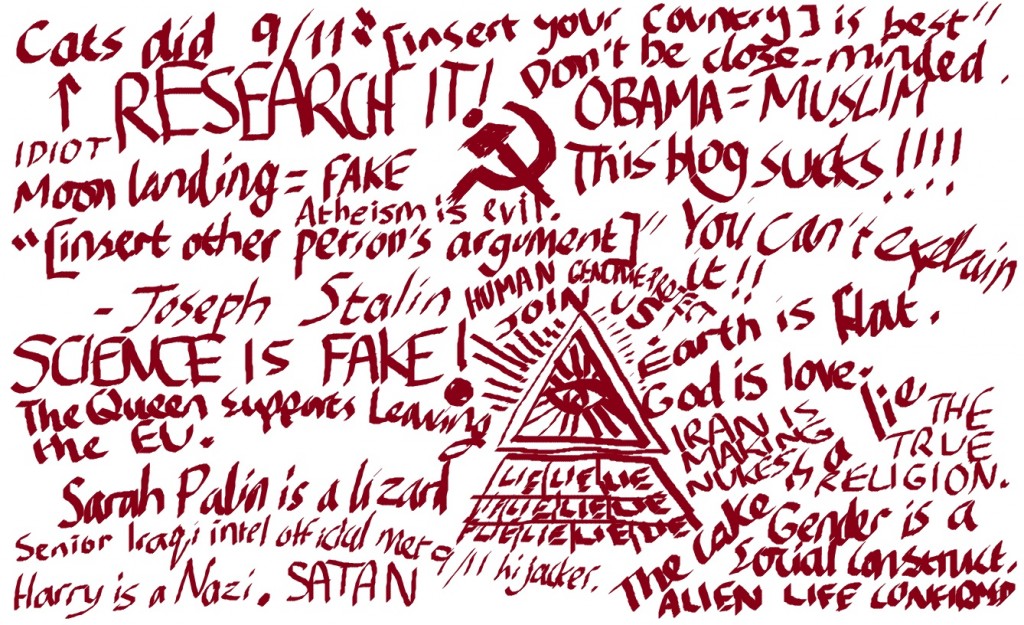 Cats did 9/11
"[insert your country] is best"
Don't be close-minded.
↑ RESEARCH IT!
OBAMA = MUSLIM
IDIOT
This blog sucks!!!!
Moon landing = FAKE
Atheism is evil.
"[insert other person's argument]"
- Joseph Stalin
You can't explain
it!!
HUMAN GENOME PROJECT
JOIN US
Earth is flat.
SCIENCE IS FAKE!
God is love.
The Queen supports Leaving
the EU.
IRAN IS
MAKING
NUKES
The cake is a lie
THE
TRUE
RELIGION.
LIE LIE LIE
LIE LIE LIE
LIE LIE LIE LIE
Sarah Palin is a lizard
Senior Iraqi intel official met 9/11 hijacker.
Gender is a
social construct.
Harry is a Nazi. SATAN
ALIEN LIFE CONFIRMED